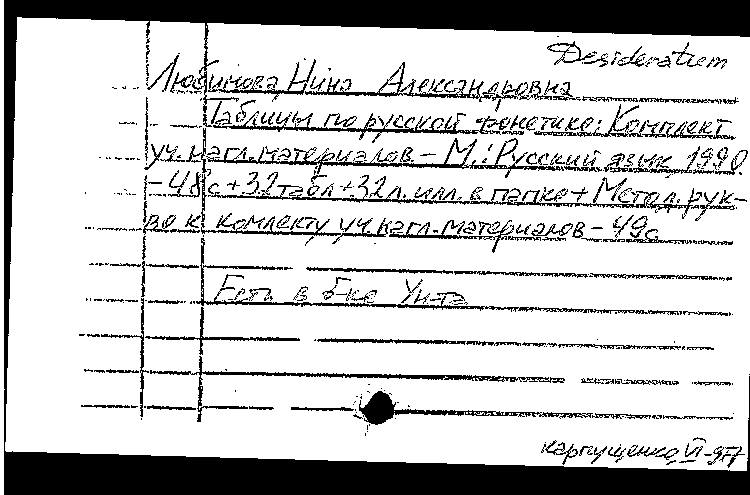 Desideratum
Любимова, Нина Александровна
Таблицы по русской фонетике: Комплект
уч. нагл. материалов – М.: Русский язык 1990.
– 48 с + 32 табл + 32 л. илл. в папке + Метод. рук-
во к комлекту уч. нагл. материалов – 49 с
Есть в б-ке Ун-та
Карпущенко, VI-97г